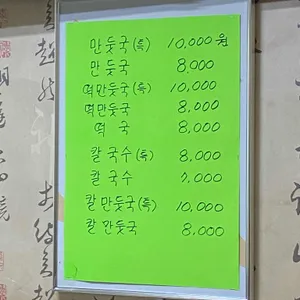 만둣국(특) 10,000원
만둣국 8,000
떡만둣국(특) 10,000
떡만둣국 8,000
떡국 8,000
칼국수(특) 8,000
칼국수 7,000
칼만둣국(특) 10,000
칼만둣국 8,000